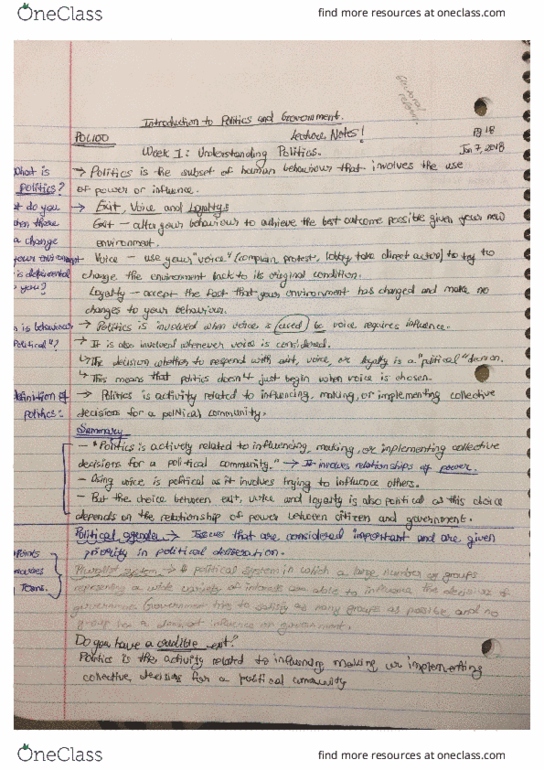 OneClass
find more resources at oneclass.com
Introduction to Politics and Government.
POL100
Lecture Notes!
pg 18
Jan 7, 2018
Week 1: Understanding Politics.
What is
politics?
→ Politics is the subset of human behaviour that involves the use
of power or influence.
do you
→ Exit, Voice and Loyalty:
Exit - alter your behaviour to achieve the best outcome possible given your new
a change
environment.
your environment
Voice - use your "voice" (complain, protest, lobby, take direct action) to try to
change the environment back to its original condition.
you?
Loyalty - accept the fact that your environment has changed and make no
changes to your behaviour.
is behaviour
political"?
→ Politics is involved when voice is used voice requires influence.
→ It is also involved whenever voice is considered.
↳ The decision whether to respond with exit, voice, or loyalty is a "political"
↳ This means that politics doesn't just begin when voice is chosen.
definition of
politics:
→ Politics is activity related to influencing, making, or implementing collective
decisions for a political community.
Summary
- "Politics is actively related to influencing, making, or implementing collective
decisions for a political community." → It involves relationships of power.
- Using voice is political as it involves trying to influence others.
- But the choice between exit, voice and loyalty is also political as this choice
depends on the relationship of power between citizen and government.
Political agenda → Issues that are considered important and are given
priority in political
Terms.
Pluralist system → A political system in which a large number of groups
representing a wide variety of interests are able to influence the decisions of
government. Government tries to satisfy as many groups as possible and no
group has a dominant influence on government.
Do you have a credible exit?
Politics is the activity related to influencing, making, or implementing
collective decisions for a political community
OneClass
find more resources at oneclass.com